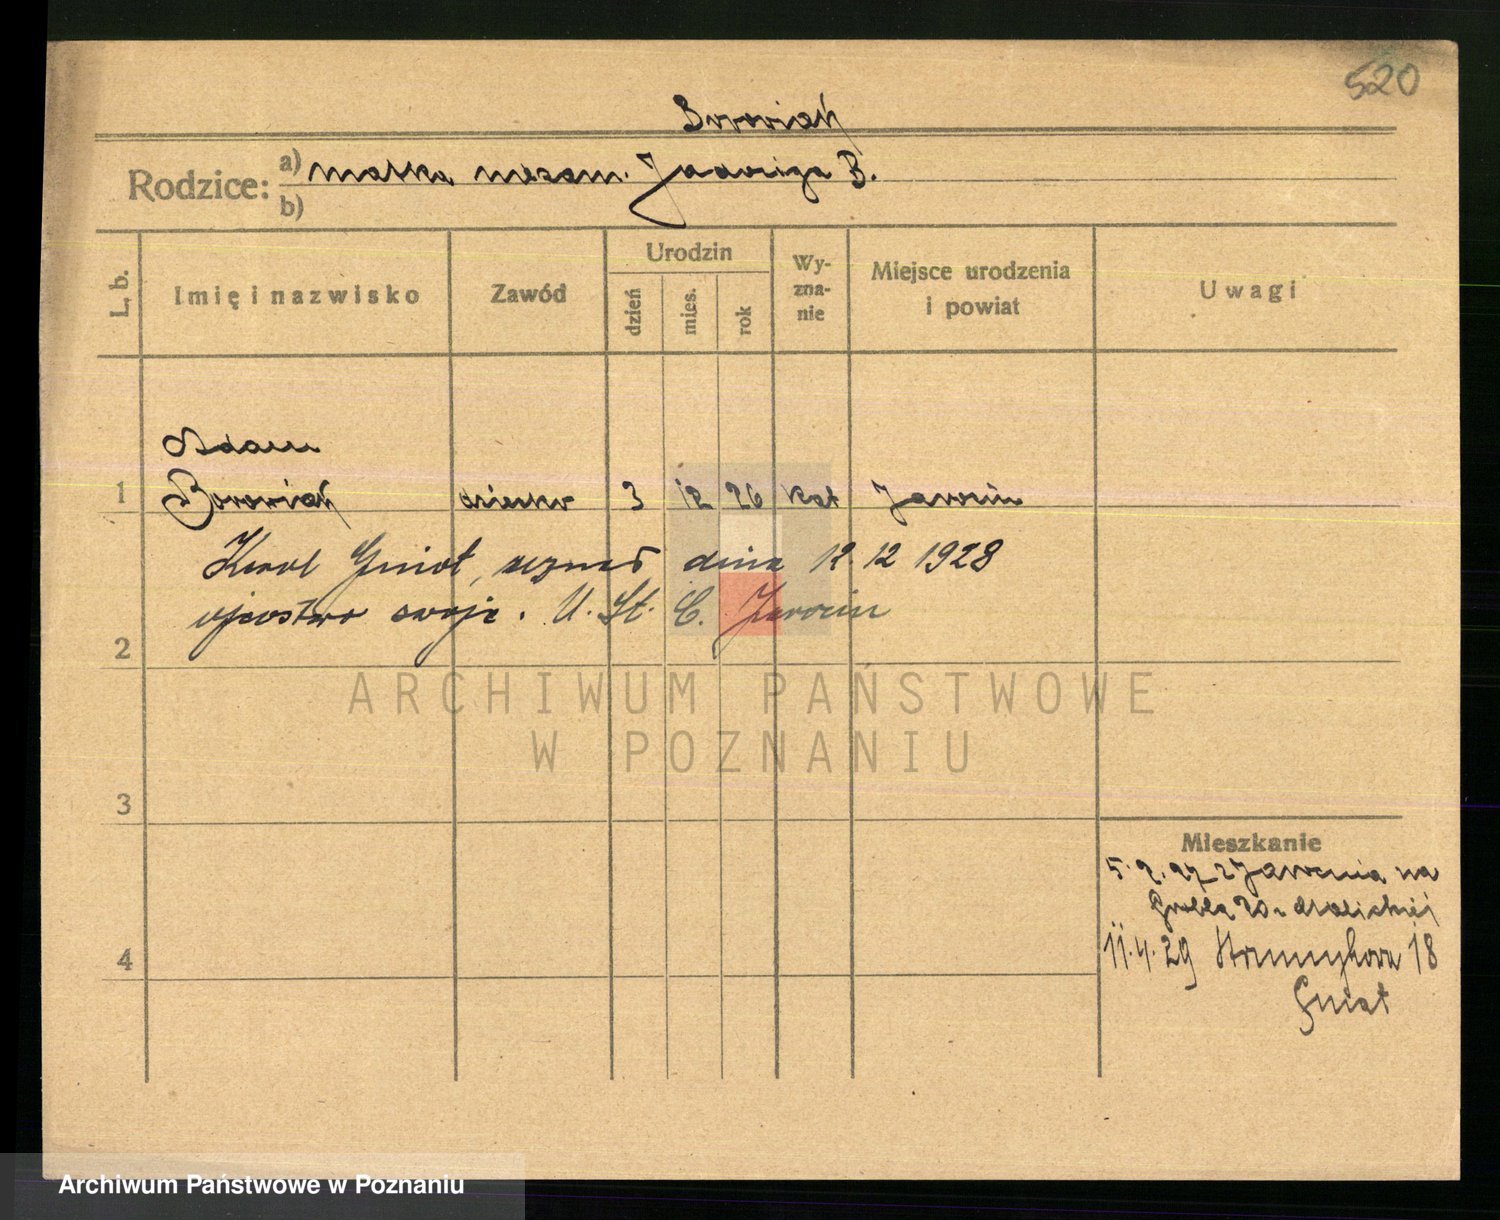 520
Borowiak
Rodzice: a) matka niezam. Jadwiga B.
b)
L. b.
Imię i nazwisko
Zawód
Urodzin
dzień
mies.
rok
Wy-
zna-
nie
Miejsce urodzenia
i powiat
Uwagi
Adam
1 Borowiak dziecko 3 12 26 kat Jarocin
Karol Gniot, uznał dnia 12.12 1928
ojcostwo swoje. U. St. C. Jarocin
2
3
4
Mieszkanie
5.2.27 z Jarocina na
Grobla 20
11.4.29 18
Gniot
ARCHIWUM PAŃSTWOWE
W POZNANIU
Archiwum Państwowe w Poznaniu